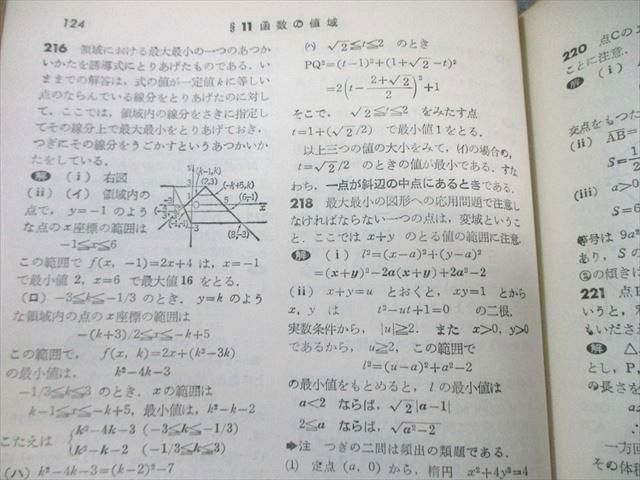 124 §11 函数の値域
216 領域における最大最小の一つのあつか
いかたを誘導式にとりあげたものである. い
ままでの解答は, 式の値が一定値 k に等しい
点のならんでいる線分をとりあげたのに対し
て, ここでは, 領域内の線分をさきに指定し
てその線分上で最大最小をとりあげておき,
つぎにその線分をうごかすというあつかいか
たをしている.
解 (i) 右図
(ii) (イ) 領域内の
点で, y=-1 のよう
な点の x 座標の範囲は
-1≦x≦6
この範囲で f(x, -1)=2x+4 は, x=-1
で最小値 2, x=6 で最大値 16 をとる.
(ロ) -3≦k≦-1/3 のとき. y=k のよう
な領域内の点の x 座標の範囲は
-(k+3)/2≦x≦-k+5
この範囲で, f(x, k)=2x+(k²-3k)
の最小値は, k²-4k-3
-1/3≦k≦3 のとき. x の範囲は
k-1≦x≦-k+5, 最小値は, k²-k-2
こたえは {k²-4k-3 (-3≦k≦-1/3)
k²-k-2 (-1/3≦k≦3)
(ハ) k²-4k-3=(k-2)²-7
(k-1,k)
(2,3)
(-k+5,k)
(6,-1)
(8,-3)
(ハ) √2≦t≦2 のとき
PQ²=(t-1)²+(1+√2-t)²
=2(t-(2+√2)/2)²+1
そこで, √2≦t≦2 をみたす点
t=1+(√2/2) で最小値 1 をとる.
以上三つの値の大小をみて, (イ)の場合の,
t=√2/2 のときの値が最小である. すな
わち, 一点が斜辺の中点にあるときである.
218 最大最小の図形への応用問題で注意し
なければならない一つの点は, 変域というこ
と. ここでは x+y のとる値の範囲に注意.
解 (i) l²=(x-a)²+(y-a)²
=(x+y)²-2a(x+y)+2a²-2
(ii) x+y=u とおくと, xy=1 とから
x, y は t²-ut+1=0 の二根.
実数条件から, |u|≧2. また x>0, y>0
であるから, u≧2, この範囲で
l²=(u-a)²+a²-2
の最小値をもとめると, l の最小値は
a<2 ならば, √2|a-1|
2≦a ならば, √a²-2
➡注 つぎの二問は頻出の類題である.
(1) 定点 (a, 0) から, 楕円 x²+4y²=4
220 点Cの
ことに注意.
解 (i)
交点をもつた
(ii) AB=
S=
(iii) a>0
S=6
等号は 9a²
あり, Sの
Sの傾きは
221 点
いうと,
もいださ
解 △
P=
の長さを
a
∴
一方回
その体